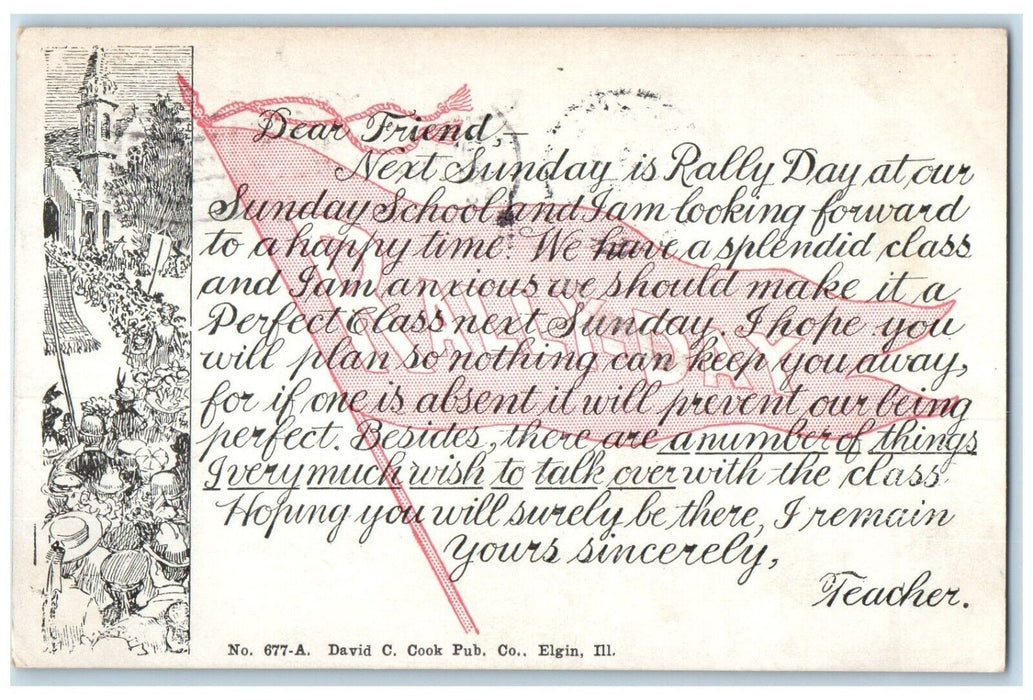 Dear Friend,—
Next Sunday is Rally Day at our
Sunday School and I am looking forward
to a happy time. We have a splendid class
and I am anxious we should make it a
Perfect Class next Sunday. I hope you
will plan so nothing can keep you away,
for if one is absent it will prevent our being
perfect. Besides, there are a number of things
I very much wish to talk over with the class
Hoping you will surely be there, I remain
Yours sincerely,
Teacher.
RALLY-DAY
No. 677-A. David C. Cook Pub. Co., Elgin, Ill.